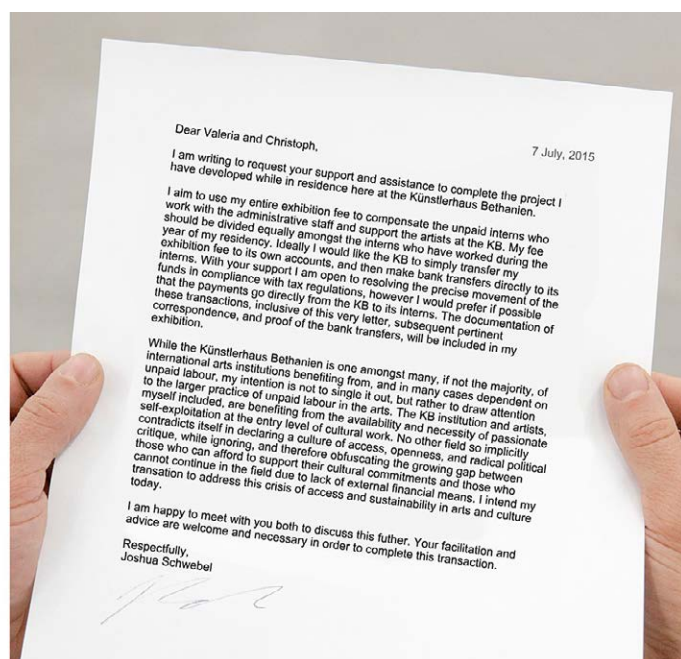 7 July, 2015
Dear Valeria and Christoph,
I am writing to request your support and assistance to complete the project I
have developed while in residence here at the Künstlerhaus Bethanien.
I aim to use my entire exhibition fee to compensate the unpaid interns who
work with the administrative staff and support the artists at the KB. My fee
should be divided equally amongst the interns who have worked during the
year of my residency. Ideally I would like the KB to simply transfer my
exhibition fee to its own accounts, and then make bank transfers directly to its
interns. With your support I am open to resolving the precise movement of the
funds in compliance with tax regulations, however I would prefer if possible
that the payments go directly from the KB to its interns. The documentation of
these transactions, inclusive of this very letter, subsequent pertinent
correspondence, and proof of the bank transfers, will be included in my
exhibition.
While the Künstlerhaus Bethanien is one amongst many, if not the majority, of
international arts institutions benefiting from, and in many cases dependent on
unpaid labour, my intention is not to single it out, but rather to draw attention
to the larger practice of unpaid labour in the arts. The KB institution and artists,
myself included, are benefiting from the availability and necessity of passionate
self-exploitation at the entry level of cultural work. No other field so implicitly
contradicts itself in declaring a culture of access, openness, and radical political
critique, while ignoring, and therefore obfuscating the growing gap between
those who can afford to support their cultural commitments and those who
cannot continue in the field due to lack of external financial means. I intend my
transation to address this crisis of access and sustainability in arts and culture
today.
I am happy to meet with you both to discuss this futher. Your facilitation and
advice are welcome and necessary in order to complete this transaction.
Respectfully,
Joshua Schwebel